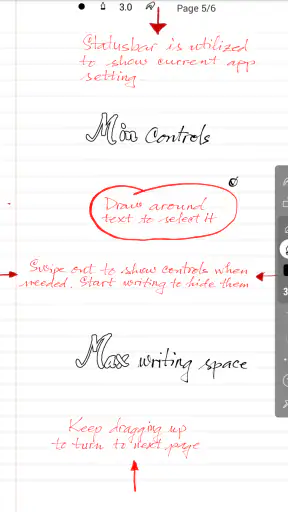 3.0 Page 5/6
Statusbar is utilized
to show current app
setting.
Min Controls
Draw around
text to select it
Swipe out to show controls when
needed. Start writing to hide them
3
Max writing space
Keep dragging up
to turn to next page